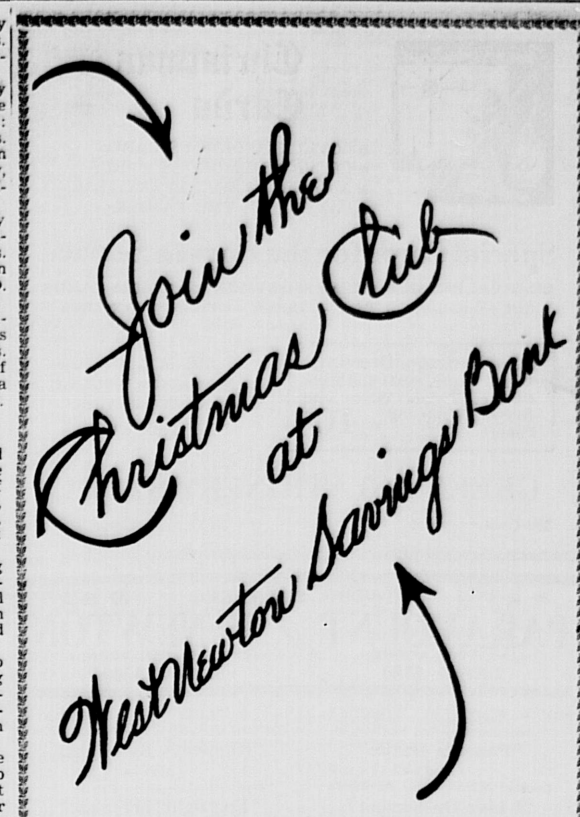 Join the
Christmas Club
at
West Newton Savings Bank